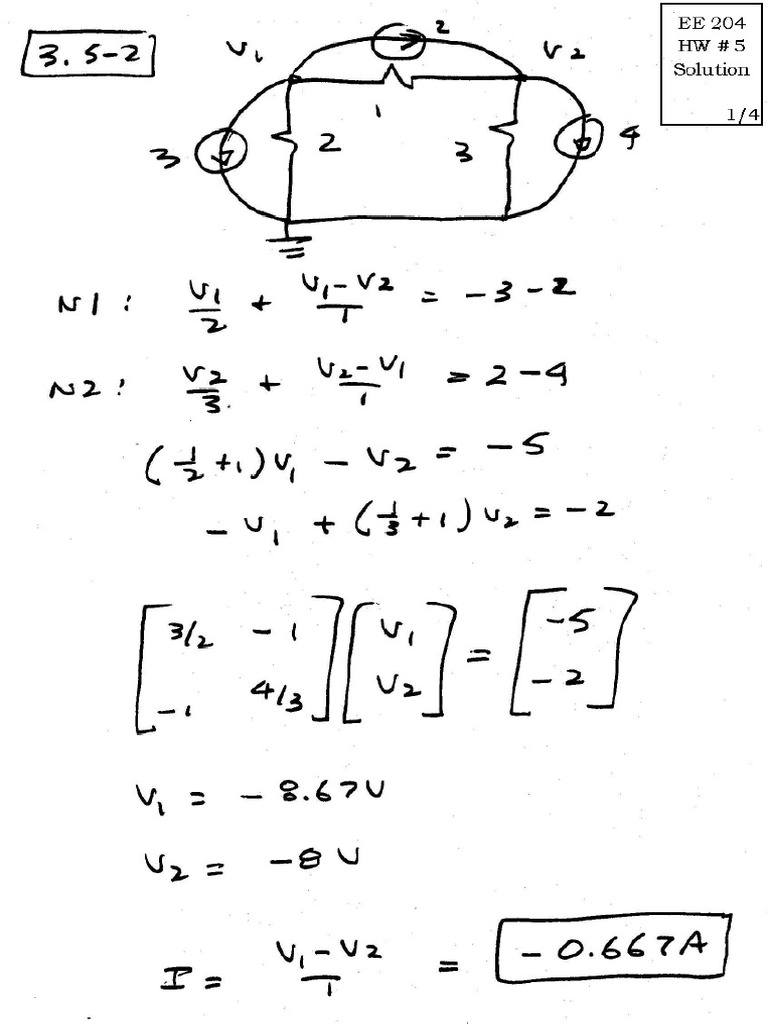 EE 204
HW # 5
Solution
1/4
3.5-2
V₁ 2 V2
1
3 2 3 4
N1: V₁/2 + (V₁-V2)/1 = -3-2
N2: V2/3 + (V2-V₁)/1 = 2-4
(1/2+1)V₁ - V2 = -5
-V₁ + (1/3+1)V2 = -2
[3/2 -1] [V₁] = [-5]
[-1 4/3] [V2] [-2]
V₁ = -8.67V
V2 = -8 V
I = (V₁-V2)/1 = -0.667A